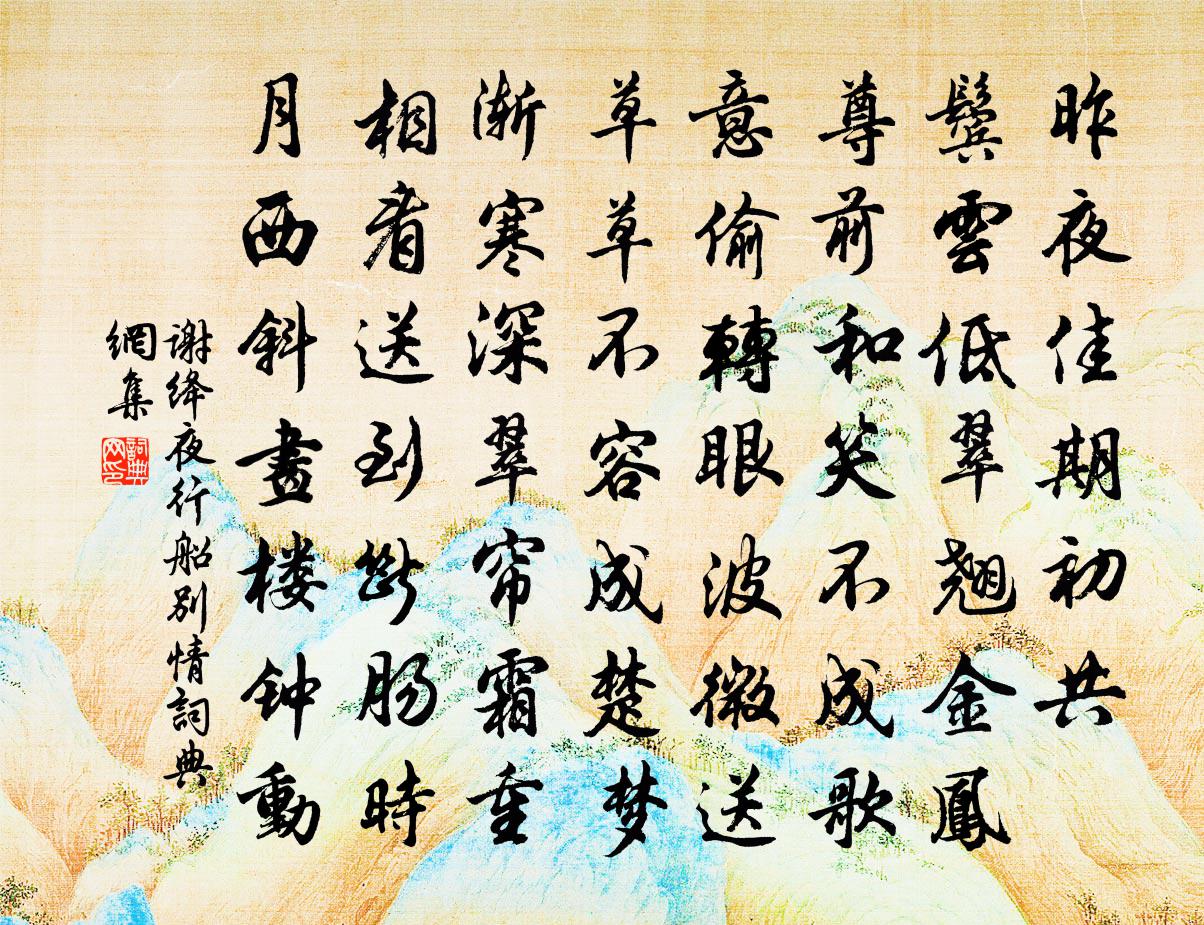 昨夜佳期初共
鬓雲低翠翹金鳳
尊前和笑不成歌
意偷轉眼波微送
草草不容成楚梦
渐寒深翠帘霜重
相看送到断肠時
月西斜畫楼钟動
谢绛夜行船别情詞典
網集
詞典
网印